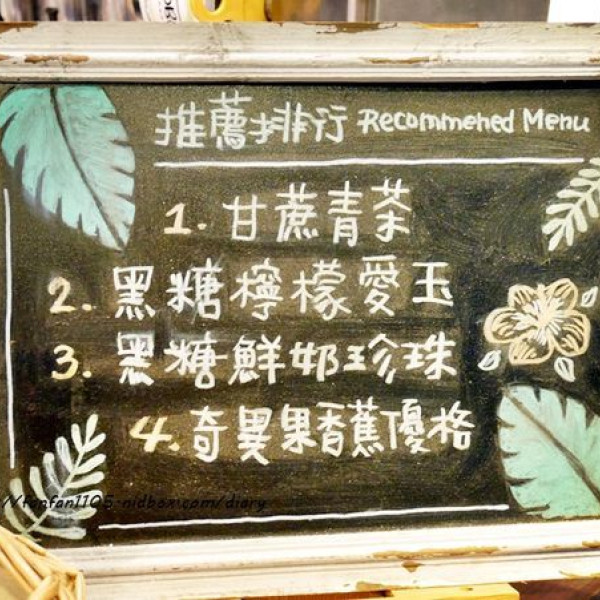 推薦排行 Recommehed Menu
1. 甘蔗青茶
2. 黑糖檸檬愛玉
3. 黑糖鮮奶珍珠
4. 奇異果香蕉優格
//fanfan1105.nidbox.com/diary